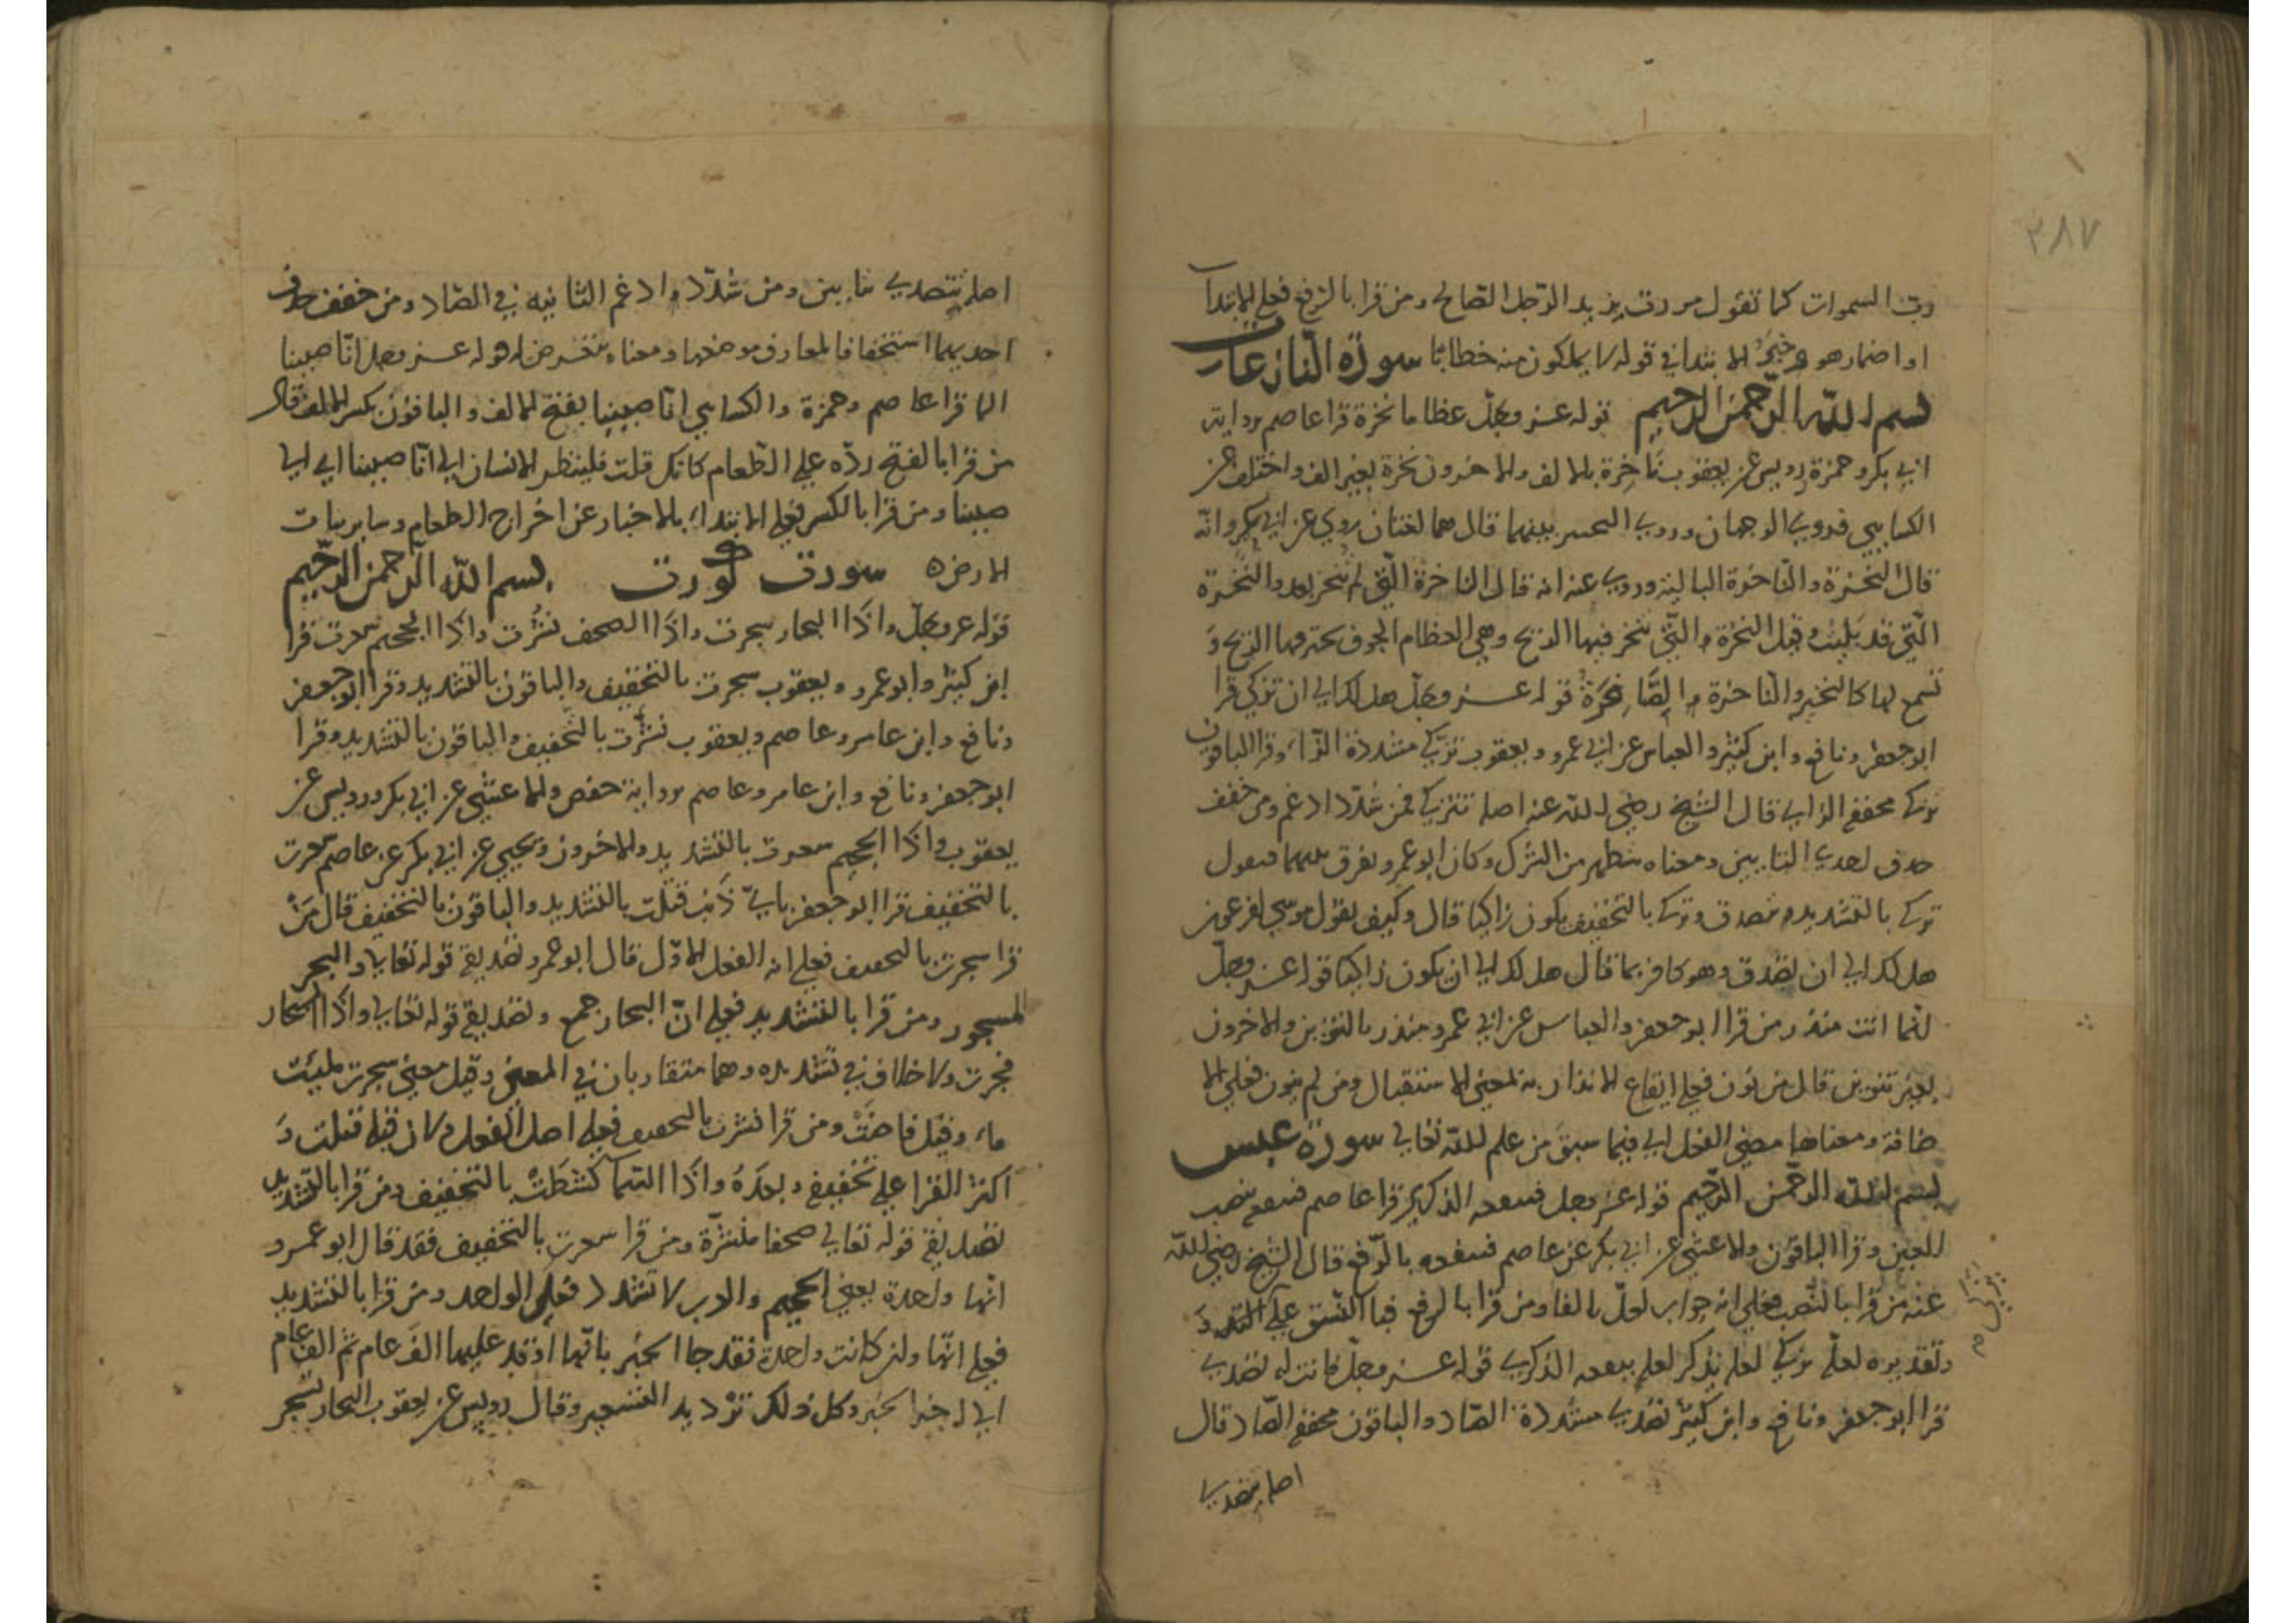 ٣٨٧
رب السموات كما تقول مررت بزيد الرجل الصالح ومن قرا بالرفع فعلى الابتدا
او اضمار هو وخبر الابتدا في قوله لا يملكون منه خطابا سورة النازعات
بسم الله الرحمن الرحيم قوله عز وجل عظاما نخرة قرا عاصم برواية
ابي بكر وحمزة رويس عن يعقوب ناخرة بالالف والاخرون نخرة بغير الف واختلف عن
الكسايي فروي الوجهان وروي التخيير بينهما قال هما لغتان روي عن ابي بكر وانّه
قال النخرة والناخرة البالية وروي عنه انه قال الناخرة التي لم تنخر بعد والنخرة
الّتي قد بليت وقيل النخرة التي تنخر فيها الريح وهي العظام الجوف تخترقها الريح و
تسمع لها كالنخير والناخرة ايضا نخرة قوله عز وجل هل لك الي ان تزكي قرا
ابو جعفر ونافع وابن كثير والعباس عن ابي عمرو ويعقوب تزّكي مشددة الزاء وقرا الباقون
تزكي مخفف الزاي قال الشيخ رضي الله عنه اصله تتزكي فمن شدّد ادغم ومن خفف
حذف احدي التايين ومعناه تتطهر من الشرك وكان ابو عمرو يفرق بينهما فيقول
تزكي بالتشديد تتصدق وتزكي بالتخفيف يكون زاكيا قال وكيف يقول موسي لفرعون
هل لك الي ان تصدق وهو كافر انما قال هل لك الي ان تكون زاكيا قوله عز وجلّ
انما انت منذر من قرا ابو جعفر والعباس عن ابي عمرو منذر بالتنوين والاخرون
بغير تنوين قال من نون فعلي ايقاع الانذار به لمعني الاستقبال ومن لم ينون فعلي الا
ضافة ومعناها مضي الفعل اي فيما سبق من علم الله تعالي سورة عبس
بسم الله الرحمن الرحيم قوله عز وجل فتنفعه الذكري قرا عاصم فتنفعه بنصب
العين وقرا الباقون والاعشي عن ابي بكر عن عاصم فتنفعه بالرفع قال الشيخ رضي الله
عنه من قرا بالنصب فعلي انه جواب لعلّ بالفا ومن قرا بالرفع فبا النسق علي
وتقديره لعلّه يزكي لعله يذكر لعله ينفعه الذكري قوله عز وجلّ فانت له تصدي
قرا ابو جعفر ونافع وابن كثير تصدي مشددة الصّاد والباقون مخفف الصّاد قال
اصله تتصدي
اصله تتصدي بتايين ومن شدّد ادغم الثانيه في الصّاد ومن خفف حذف
احديهما استخفافا لمعارف موضعها ومعناه تتعرض له قوله عز وجل انّا صببنا
الما قرا عاصم وحمزة والكسايي انّا صببنا بفتح الالف والباقون بكسر الالف قال
من قرا بالفتح ردّه علي الطعام كانك قلت فلينظر الانسان الي انّا صببنا اي الي
صببنا ومن قرا بالكسر فعلي الابتداء بالاخبار عن اخراج الطعام وساير نبات
الارض ه سورت كورت بسم الله الرحمن الرحيم
قوله عز وجلّ واذا البحار سجرت واذا الصحف نشرت واذا الجحيم سعرت قرا
ابن كثير وابو عمرو ويعقوب سجرت بالتخفيف والباقون بالتشديد وقرا ابو جعفر
ونافع وابن عامر وعاصم ويعقوب نشرت بالتخفيف والباقون بالتشديد وقرا
ابو جعفر ونافع وابن عامر وعاصم برواية حفص والاعشي عن ابي بكر ورويس عن
يعقوب واذا الجحيم سعرت بالتشديد والاخرون ويحيي عن ابي بكر عن عاصم سعرت
بالتخفيف قرا ابو جعفر بايّ ذنب قتلت بالتشديد والباقون بالتخفيف قال من
قرا سجرت بالتخفيف فعلي انه الفعل الاوّل قال ابو عمرو تصديقه قوله تعالي والبحر
المسجور ومن قرا بالتشديد فعلي انّ البحار جمع وتصديقه قوله تعالي واذا البحار
فجرت ولا خلاف في تشديده وهما متقاربان في المعني وقيل معني سجرت مليت
ماء وقيل فاضت ومن قرا نشرت بالتخفيف فعلي اصل الفعل ولان قبله قتلت و
اكثر القرا علي تخفيفه وبعده واذا السّما كشطت بالتخفيف ومن قرا بالتشديد
تصديقه قوله تعالي صحفا منشّرة ومن قرا سعرت بالتخفيف فقد قال ابو عمرو
انّها واحدة يعني الجحيم لا تشدد فعلي الواحد ومن قرا بالتشديد
فعلي انّها وان كانت واحدة فقد جا الخبر بانّها اوقد عليها الف عام ثم الف عام
الي اخر الخبر وكل ذلك ترديد التسعير وقال رويس عن يعقوب البحار سجر